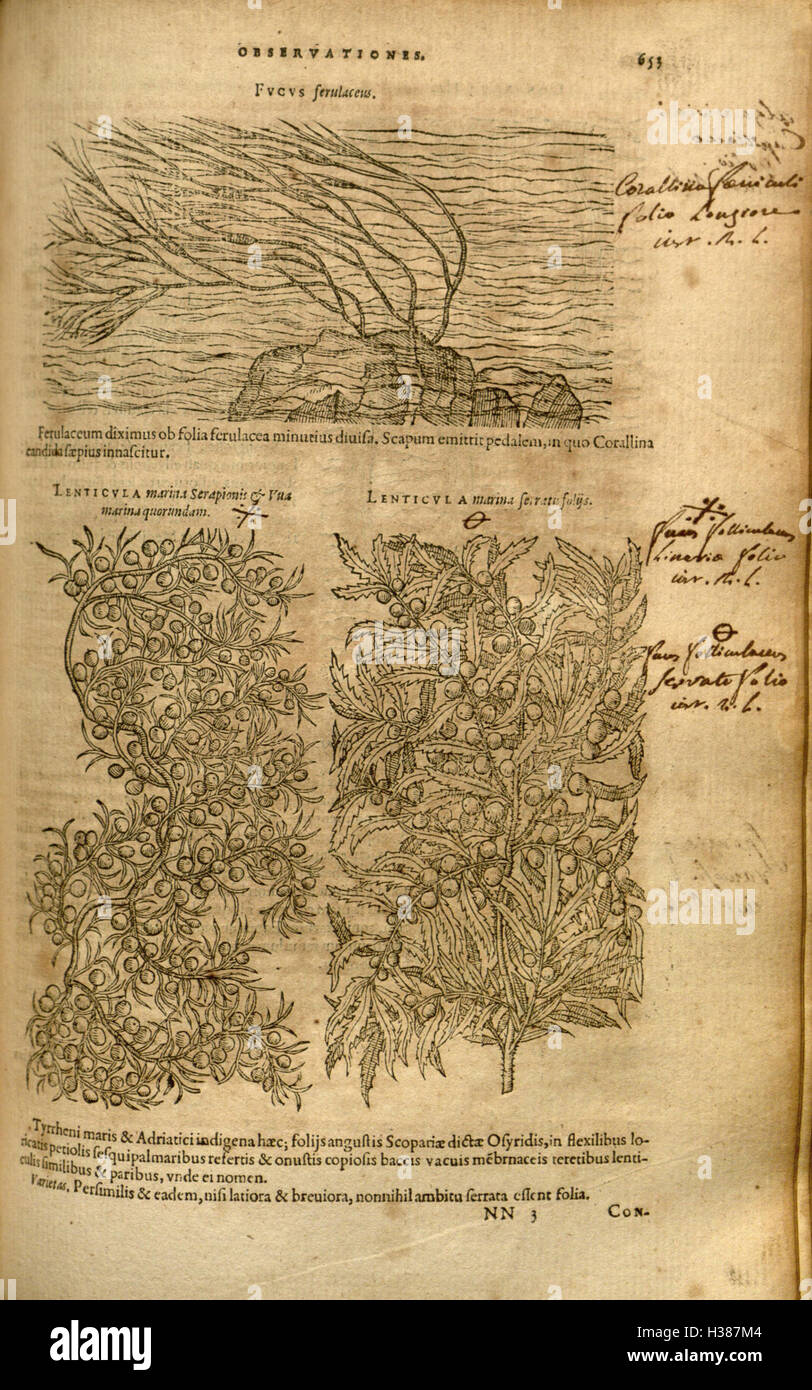 OBSERVATIONES.
653
FVCVS ferulaceus.
Corallina fœniculi
folio Longiore
inst. R. h.
Ferulaceum diximus ob folia ferulacea minutius diuisa. Scapum emittit pedalem, in quo Corallina
candida sæpius innascitur.
LENTICVLA marina Serapionis & Vua
marina quorundam.
LENTICVLA marina serratis folijs.
fucus folliculaceus
Linariæ folio
inst. R. h.
fucus folliculaceus
serrato folio
inst. R. h.
Tyrrheni maris & Adriatici indigena hæc; folijs angustis Scopariæ dictæ Osyridis, in flexilibus lo-
ricatis petiolis sesquipalmaribus refertis & onustis copiosis baccis vacuis mẽbrnaceis teretibus lenti-
culis similibus & paribus, vnde ei nomen.
Varietas. Persimilis & eadem, nisi latiora & breuiora, nonnihil ambitu serrata essent folia.
NN 3
CON-
alamy
a
alamy stock photo
H387M4
www.alamy.com